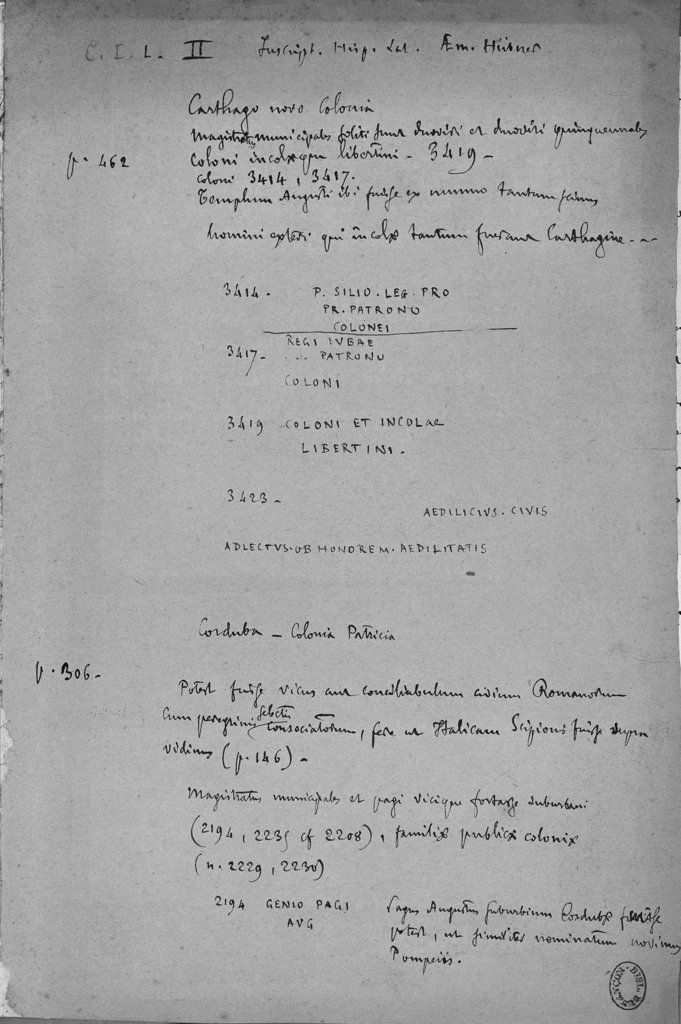 C. I. L. II Inscript. Hisp. Lat. Æm. Hübner
Carthago nova Colonia
Magistratus municipales soliti sunt duoviri et duoviri quinquennales
p. 462 Coloni incolæque libertini - 3419 -
coloni 3414, 3417.
Templum Augusti ibi fuisse ex nummo tantum scimus
homini exteri qui incolæ tantum fuerant Carthagine...
3414 - P. SILIO. LEG. PRO
PR. PATRONO
COLONEI
REGI IVBAE
3417 - ... PATRONO
COLONI
3419 COLONI ET INCOLAE
LIBERTINI.
3423 -
AEDILICIVS. CIVIS
ADLECTVS. OB HONOREM. AEDILITATIS
Corduba - Colonia Patricia
p. 306 -
Potest fuisse vicus aut conciliabulum civium Romanorum
cum peregrinis selectis consociatorum, fere ut Italicam Scipionis fuisse supra
vidimus (p. 146) -
Magistratus municipales et pagi vicique fortasse suburbani
(2194, 2235 cf 2208), familiæ publicæ coloniæ
(n. 2229, 2230)
2194 GENIO PAGI
AVG
Pagus Augustus suburbium Cordubæ fuisse
potest, ut similiter nominatum novimus
Pompeiis.